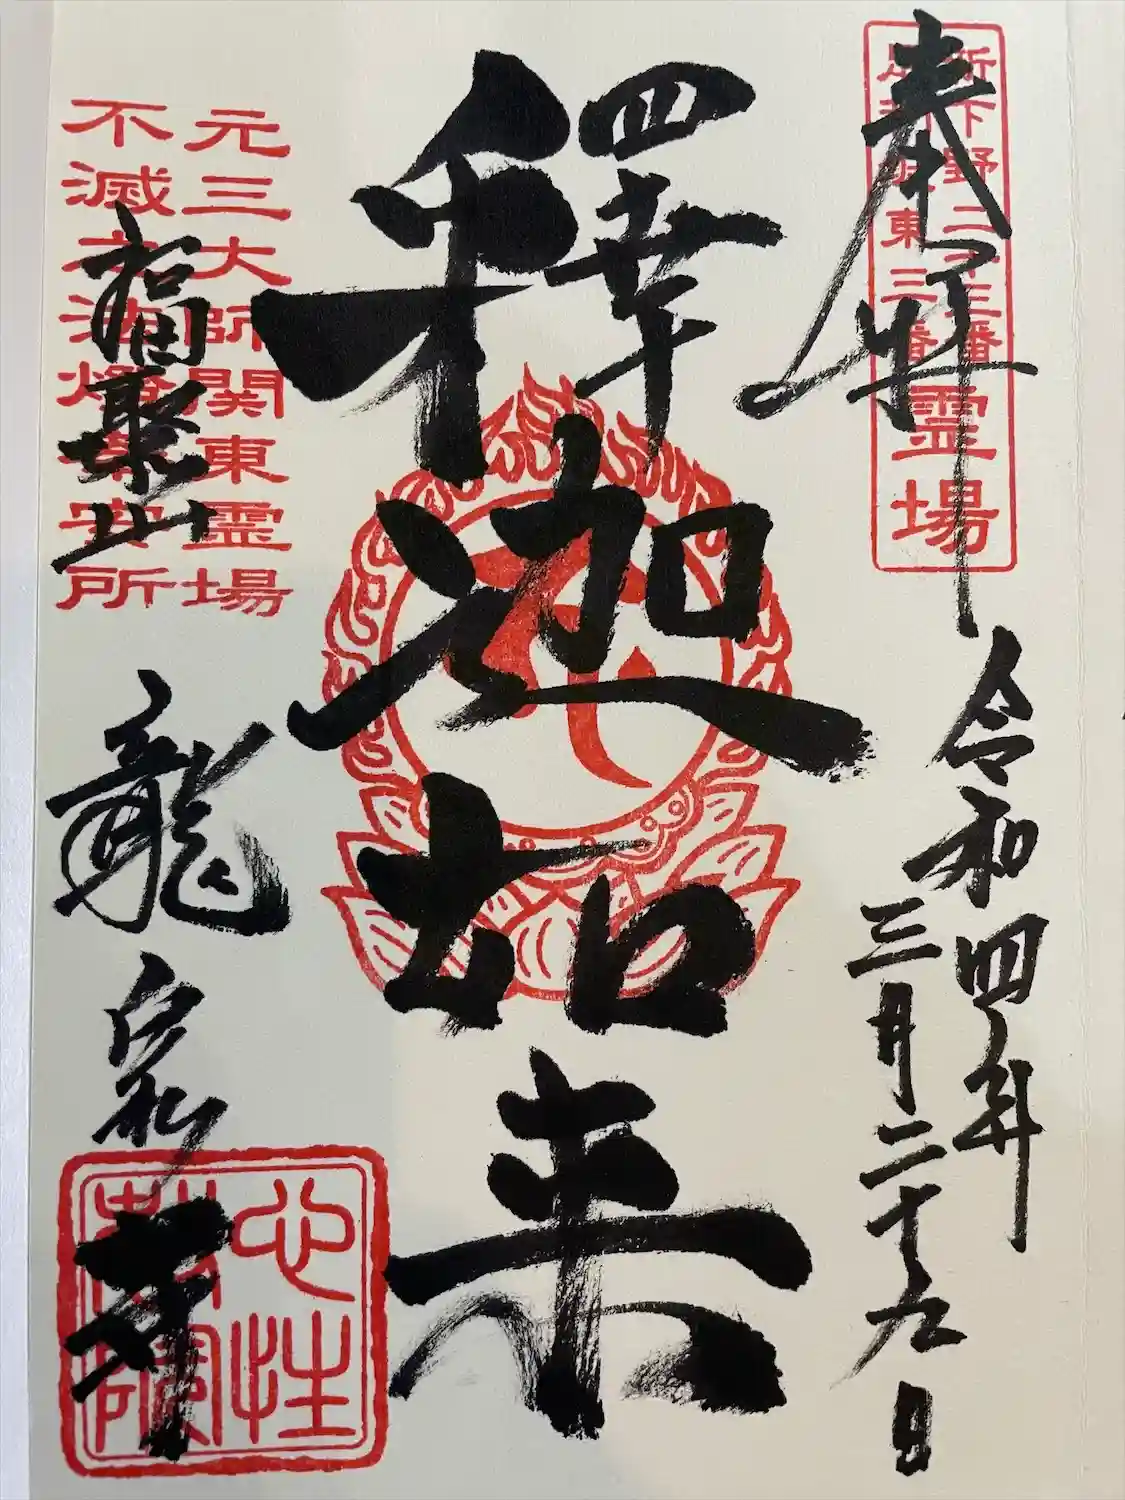 奉拝
新下野二十三番
足利坂東三番
霊場
令和四年
三月二十九日
釋迦如来
元三大師関東霊場
不滅之法燈奉安所
福聚山
龍泉寺
心性